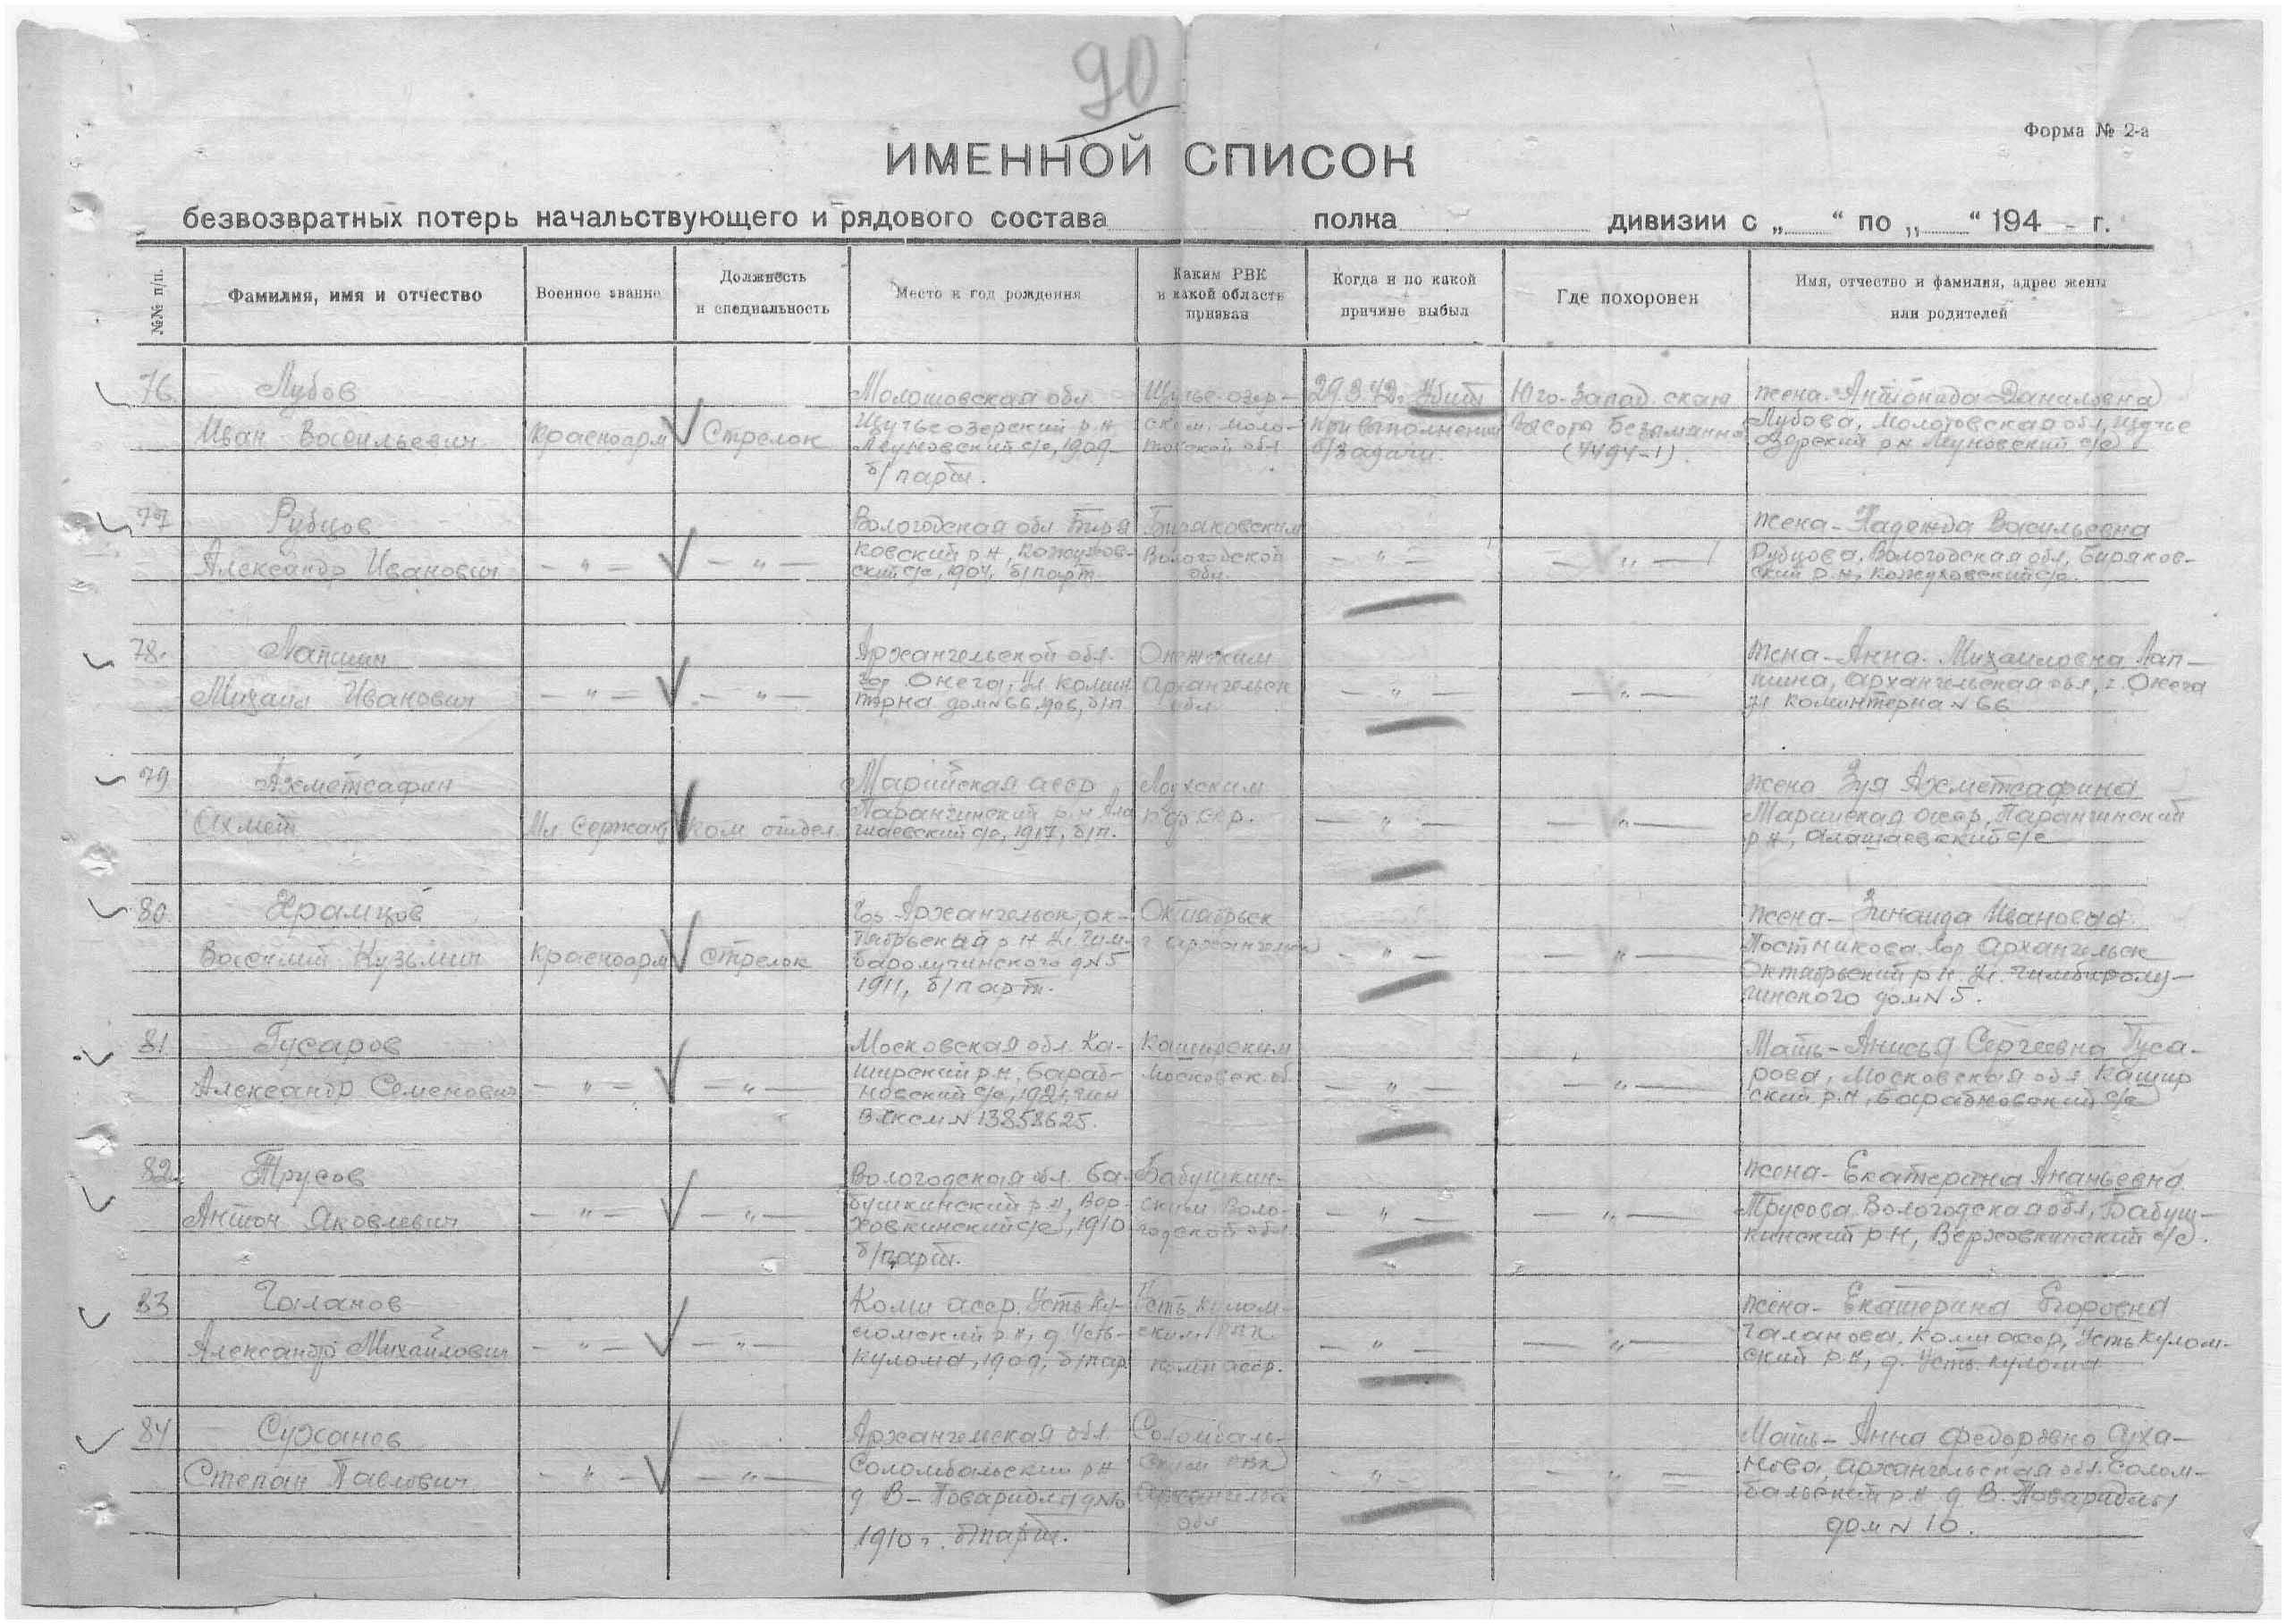 90
Форма № 2-а
ИМЕННОЙ СПИСОК
безвозвратных потерь начальствующего и рядового состава полка дивизии с „ “ по „ “ 194 г.
№№ п/п.
Фамилия, имя и отчество
Военное звание
Должность
и специальность
Место и год рождения
Каким РВК
и какой области
призван
Когда и по какой
причине выбыл
Где похоронен
Имя, отчество и фамилия, адрес жены
или родителей
76.
Лубов
Иван Васильевич
Красноарм
Стрелок
Молотовская обл.
Щучьеозерский р.н
с/с, 1909
б/парт.
Щучье-озер-
ским, Моло-
товской обл
29.3.42. Убит
при выполнении
б/задачи.
Юго-Запад. скат
высота Безымянная
(4494-1).
Жена-Антонида Даниловна
Лубова, Молотовская обл, Щучье
озерский р.н с/с
77
Рубцов
Александр Иванович
— " —
— " —
Вологодская обл. Биря
ковский р.н, Кожухов-
ский с/с, 1904, б/парт.
Биряковским
Вологодской
обл.
— " —
— " —
Жена-Надежда Васильевна
Рубцова, Вологодская обл, Биряков-
ский р.н, Кожуховский с/с.
78.
Лапшин
Михаил Иванович
— " —
— " —
Архангельской обл.
гор. Онега, ул Комин-
терна дом N 66, 906, б/п
Онежским
Архангельск
обл
— " —
— " —
Жена-Анна Михайловна Лап-
шина, Архангельская обл, г. Онега
ул Коминтерна N 66
79
Ахметсафин
Ахмет
Мл. Сержант
Ком отдел.
Марийская асср
Парангинский р.н Ала
шаевский с/с, 1917, б/п.
Лоухским
К Ф ССР.
— " —
— " —
Жена Зуя Ахметсафина
Марийская асср, Парангинский
р.н, Алашаевский с/с
80.
Храмцов
Василий Кузьмич
Красноарм
Стрелок
Гор. Архангельск, ок-
тябрьский р.н ул. Чум-
баролучинского д N 5
1911, б/парт.
Октябрьск
г Архангельск
— " —
— " —
Жена- Зинаида Ивановна
Постникова. гор Архангельск
Октябрьский р.н. ул. Чимбиролу-
чинского дом N 5.
81
Гусаров
Александр Семенович
— " —
— " —
Московская обл. Ка-
ширский р.н, Бараб-
новский с/с, 1921, член
ВЛКСМ N 13858625.
Каширским
Московск. об.
— " —
— " —
Мать-Анисья Сергеевна Гуса-
рова, Московская обл Кашир
ский р.н, Барабновский с/с
82.
Трусов
Антон Яковлевич
— " —
— " —
Вологодская обл. Ба-
бушкинский р.н, Вер-
ховкинский с/с, 1910
б/парт.
Бабушкин-
ским Воло-
годской обл.
— " —
— " —
Жена-Екатерина Ананьевна
Трусова. Вологодская обл, Бабуш-
кинский р.н, Верховкинский с/с.
83
Галанов
Александр Михайлович
— " —
— " —
Коми асср. Усть Ку-
ломский р.н, д. Усть-
Кулома, 1909, б/пар
Усть Кулом-
ским РВК
Коми асср.
— " —
— " —
Жена- Екатерина Егоровна
Галанова. Коми асср, Усть Кулом-
ский р.н, д. Усть. Кулома
84
Суханов
Степан Павлович
— " —
— " —
Архангельская обл.
Соломбальский р.н
д В-Повариолд д N 10
1910 г. б/парт.
Соломбаль-
ским РВК
Архангельс
обл
— " —
— " —
Мать- Анна Федоровна Суха-
нова, Архангельская обл. Солом-
бальский р.н д В. Поваридлы
дом N 10.